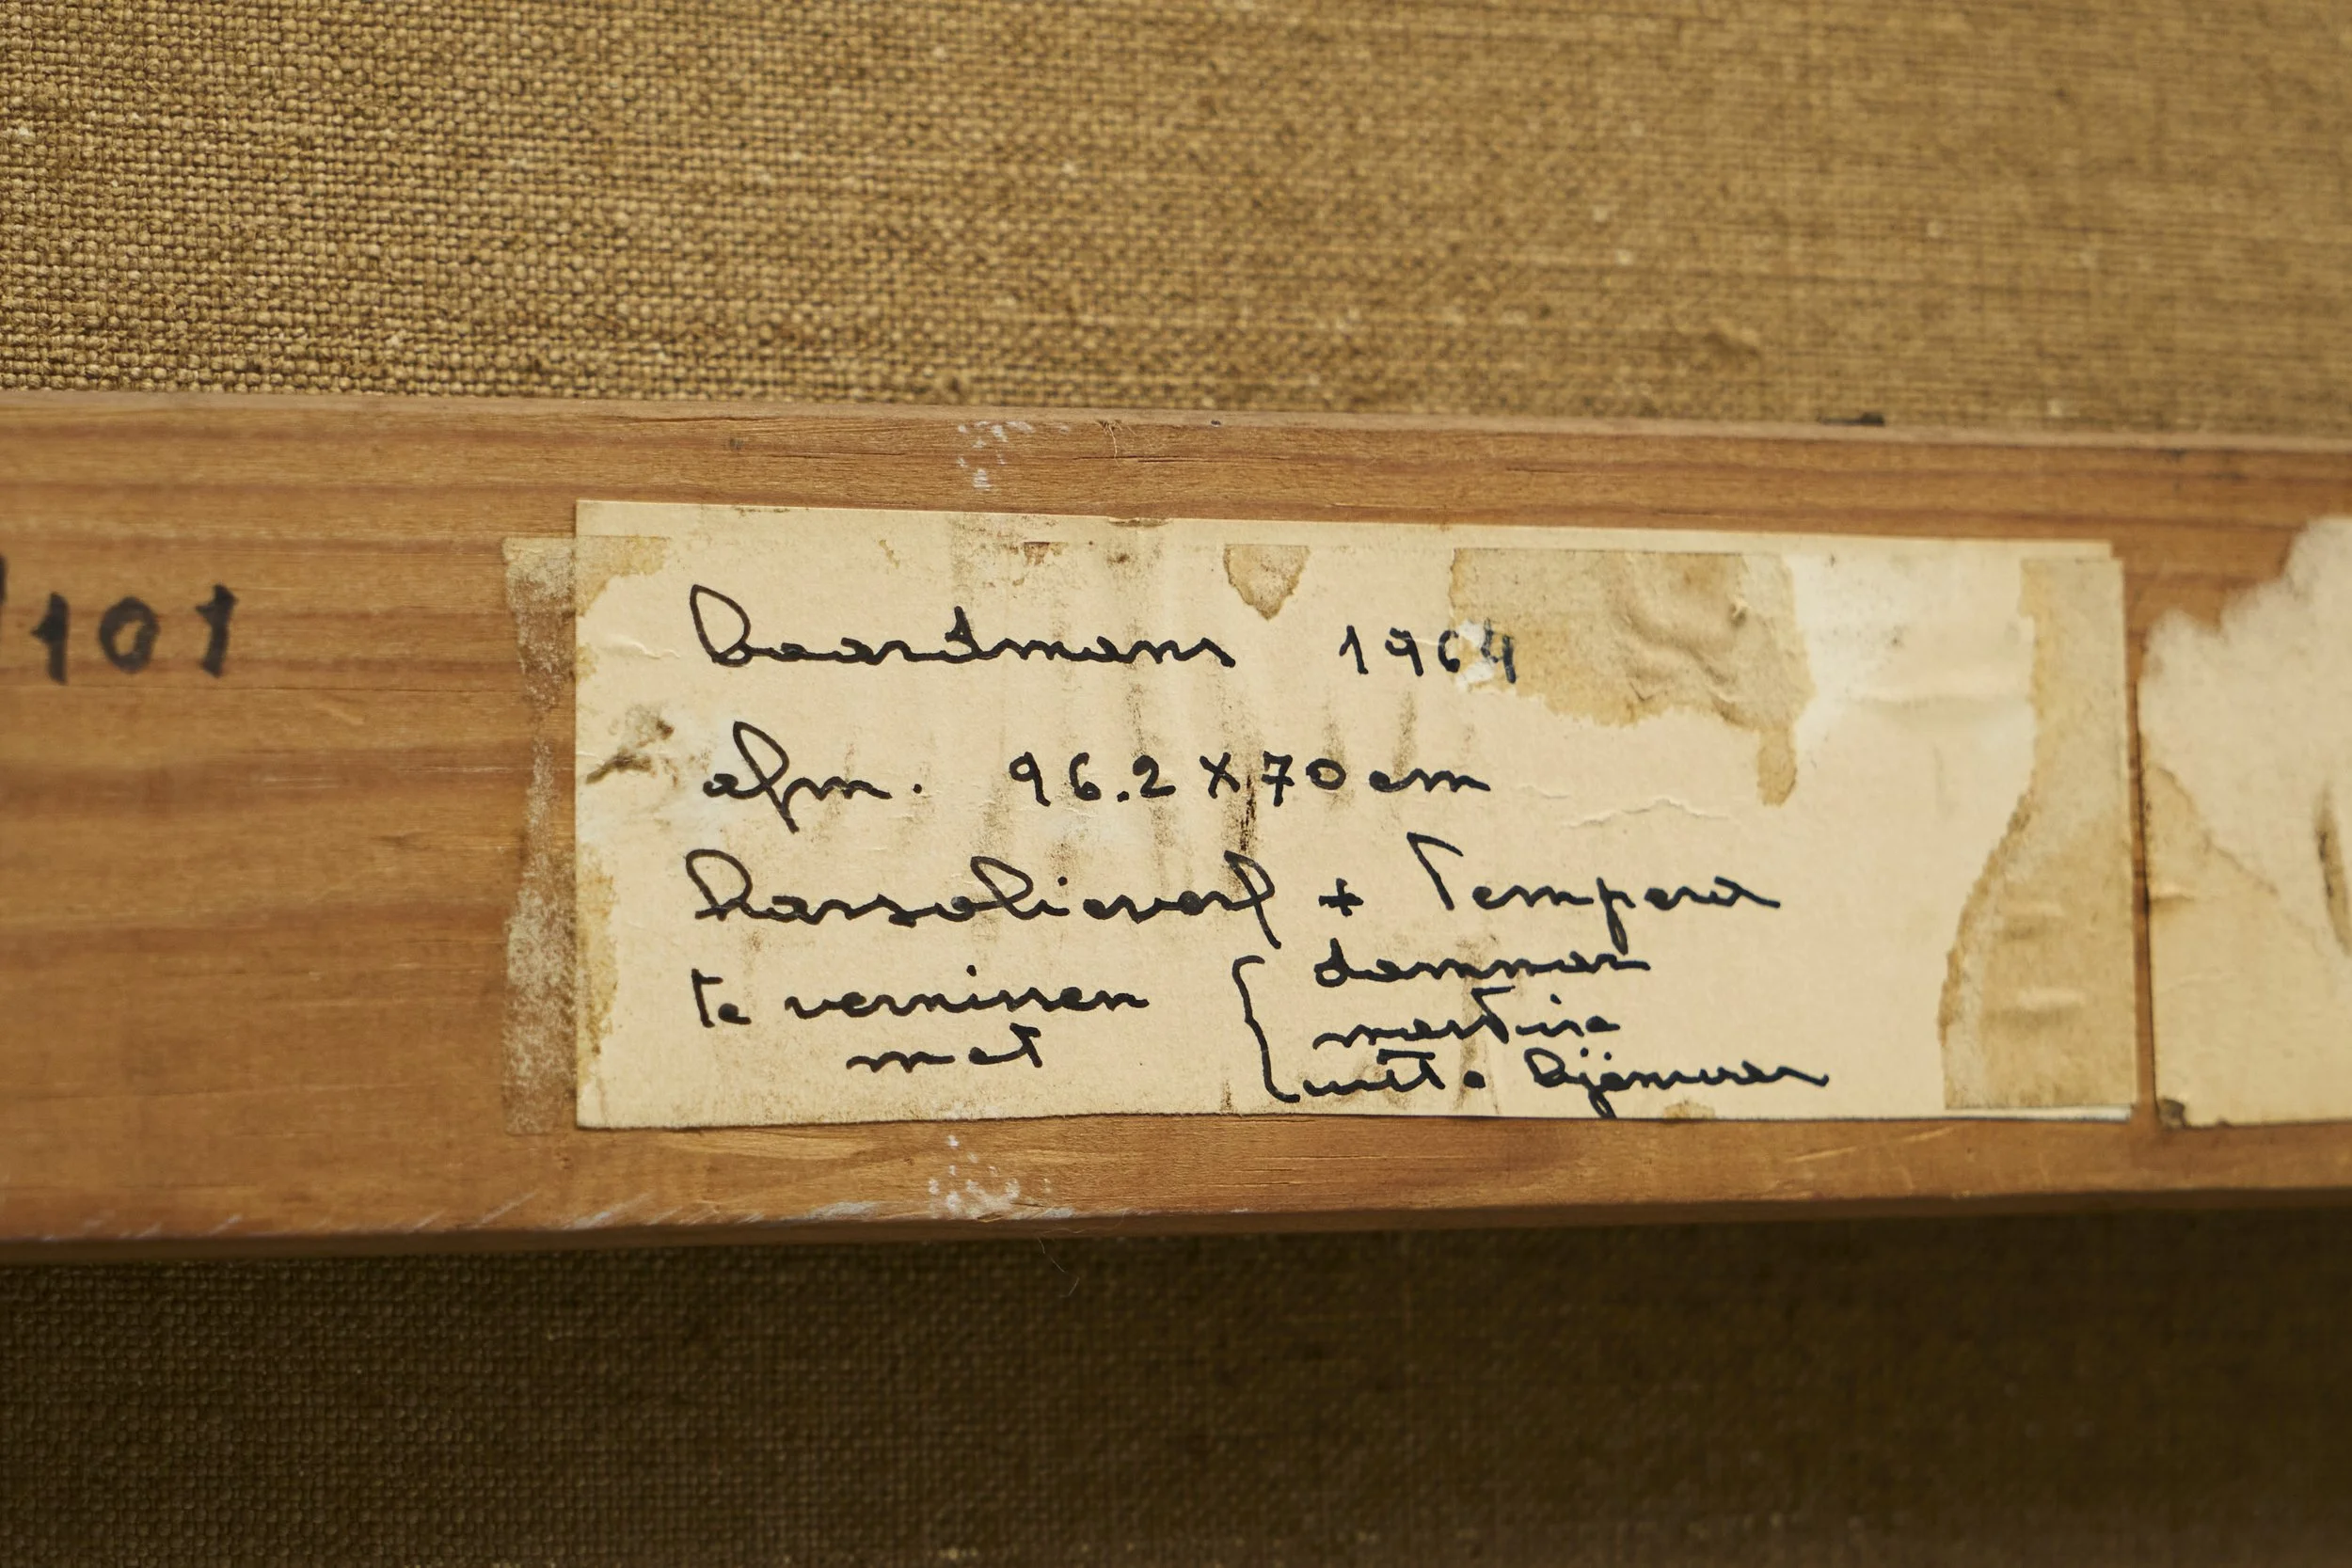 /101
baardmans 1964
afm. 96.2 X 70 cm
harsolieverf + Tempera
te vernissen
met
{ dammar
witte bijenwas